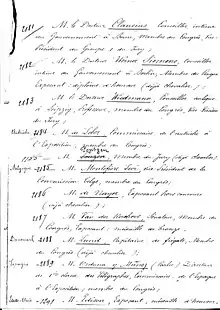 2181 — M. le Docteur Clausius, Conseiller intime
du Gouvernement à Bonn, Membre du Congrès, Vice-
Président du Groupe, du Jury;
2182 — M. le Docteur Werner Siemens, Conseiller
intime du Gouvernement à Berlin, Membre du Congrès
Exposant, diplôme d'honneur (déjà chevalier);
2183 — M. le Docteur Wiedemann, Conseiller aulique
Leipzig, Professeur, membre du Congrès,
du Jury;
Autriche 2184 — M. de Commissaire de l'Autriche à
l'Exposition, membre du Congrès;
2185 — M. Membre du Jury (déjà chevalier);
Belgique 2185 — M. Montefiore Levi, Vice Président de la
Commission belge, membre du Congrès;
2186 — M. de Exposant hors concours
(déjà chevalier);
2187 — M. Sénateur, Membre du
Congrès, Exposant, médaille de bronze.
Danemark 2188 — M. Capitaine de frégate, Membre
du Congrès (déjà chevalier);
Espagne 2189 — M. Orduna y Muñoz Directeur
de 1ère classe des Télégraphes, Commissaire de l'Espagne
à l'Exposition, membre du Congrès;
Etats-Unis — M. Edison, Exposant, médaille d'honneur;